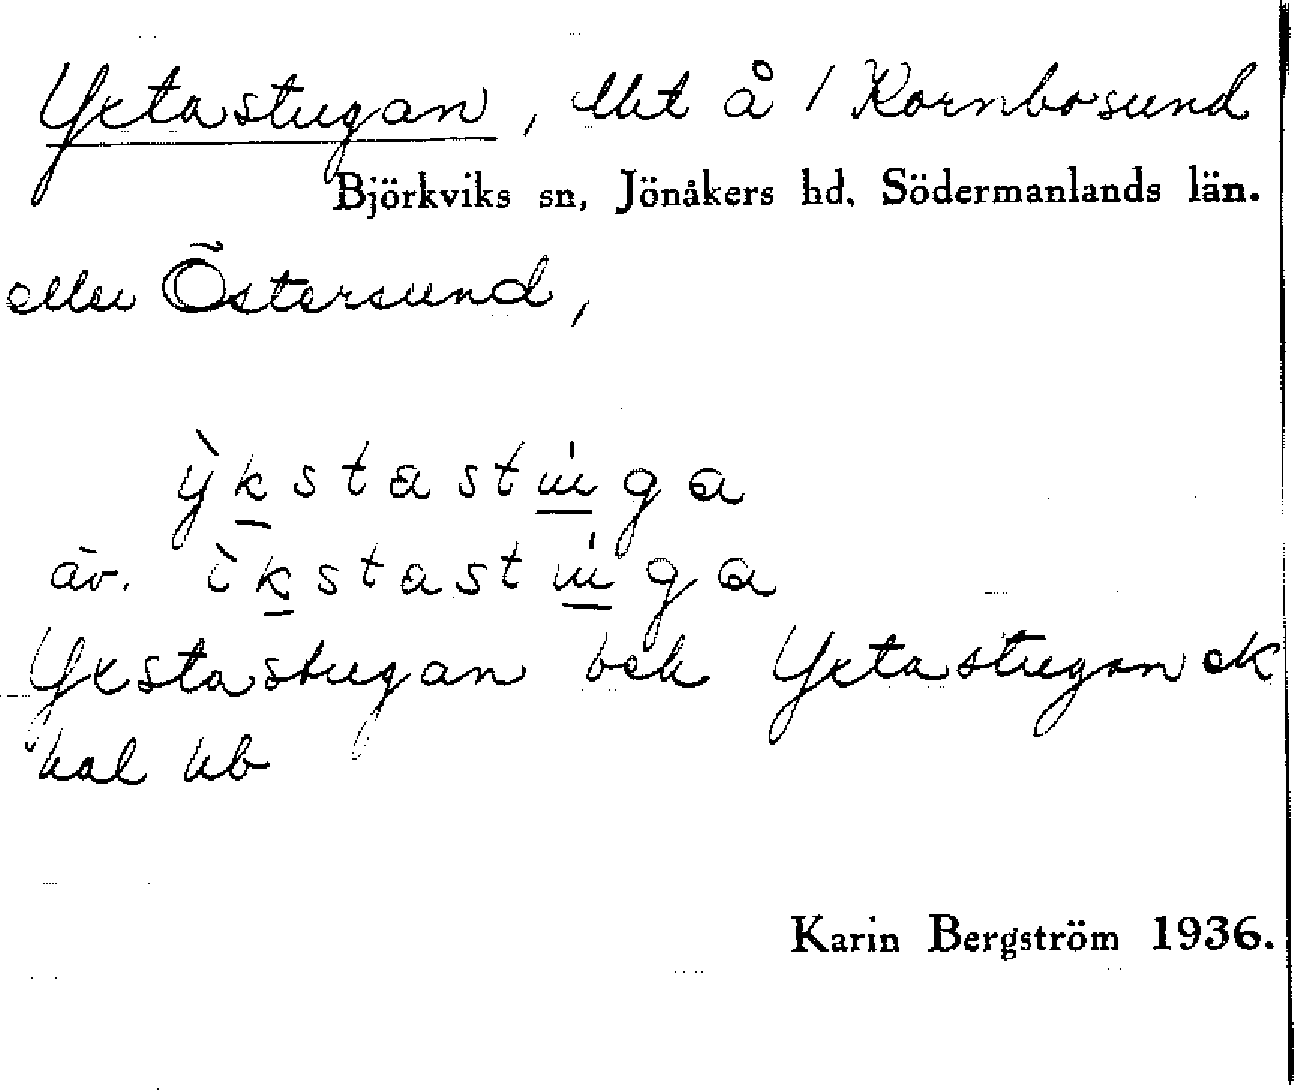 Yxtastugan, lht å / Kornbosund
Björkviks sn, Jönåkers hd, Södermanlands län.
eller Östersund,
ỳkstastu̍ga
äv. ìkstastu̍ga
Yxstastugan bek Yxtastugan ek
hal kb
Karin Bergström 1936.